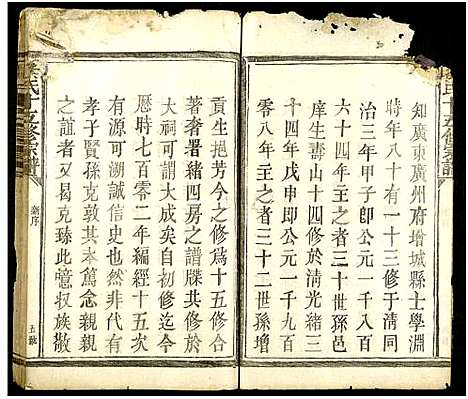 氏十五修宗譜
知廣東廣州府增城縣士學淵
時年八十有一十三修于清同
治三年甲子即公元一千八百
六十四年主之者三十世孫邑
庠生壽山十四修於清光緒三
十四年戊申即公元一千九百
零八年主之者三十二世孫增
貢生挹芳今之修爲十五修合
著者奢署緒四房之譜牒共修於
大祠可謂大成矣自初修迄今
歷時七百零二年編經十五次
有源可溯誠信史也然非代有
孝子賢孫克敦其本篤念親親
之誼者又曷克臻此噫叔族敬
氏十五修宗譜
新序
五